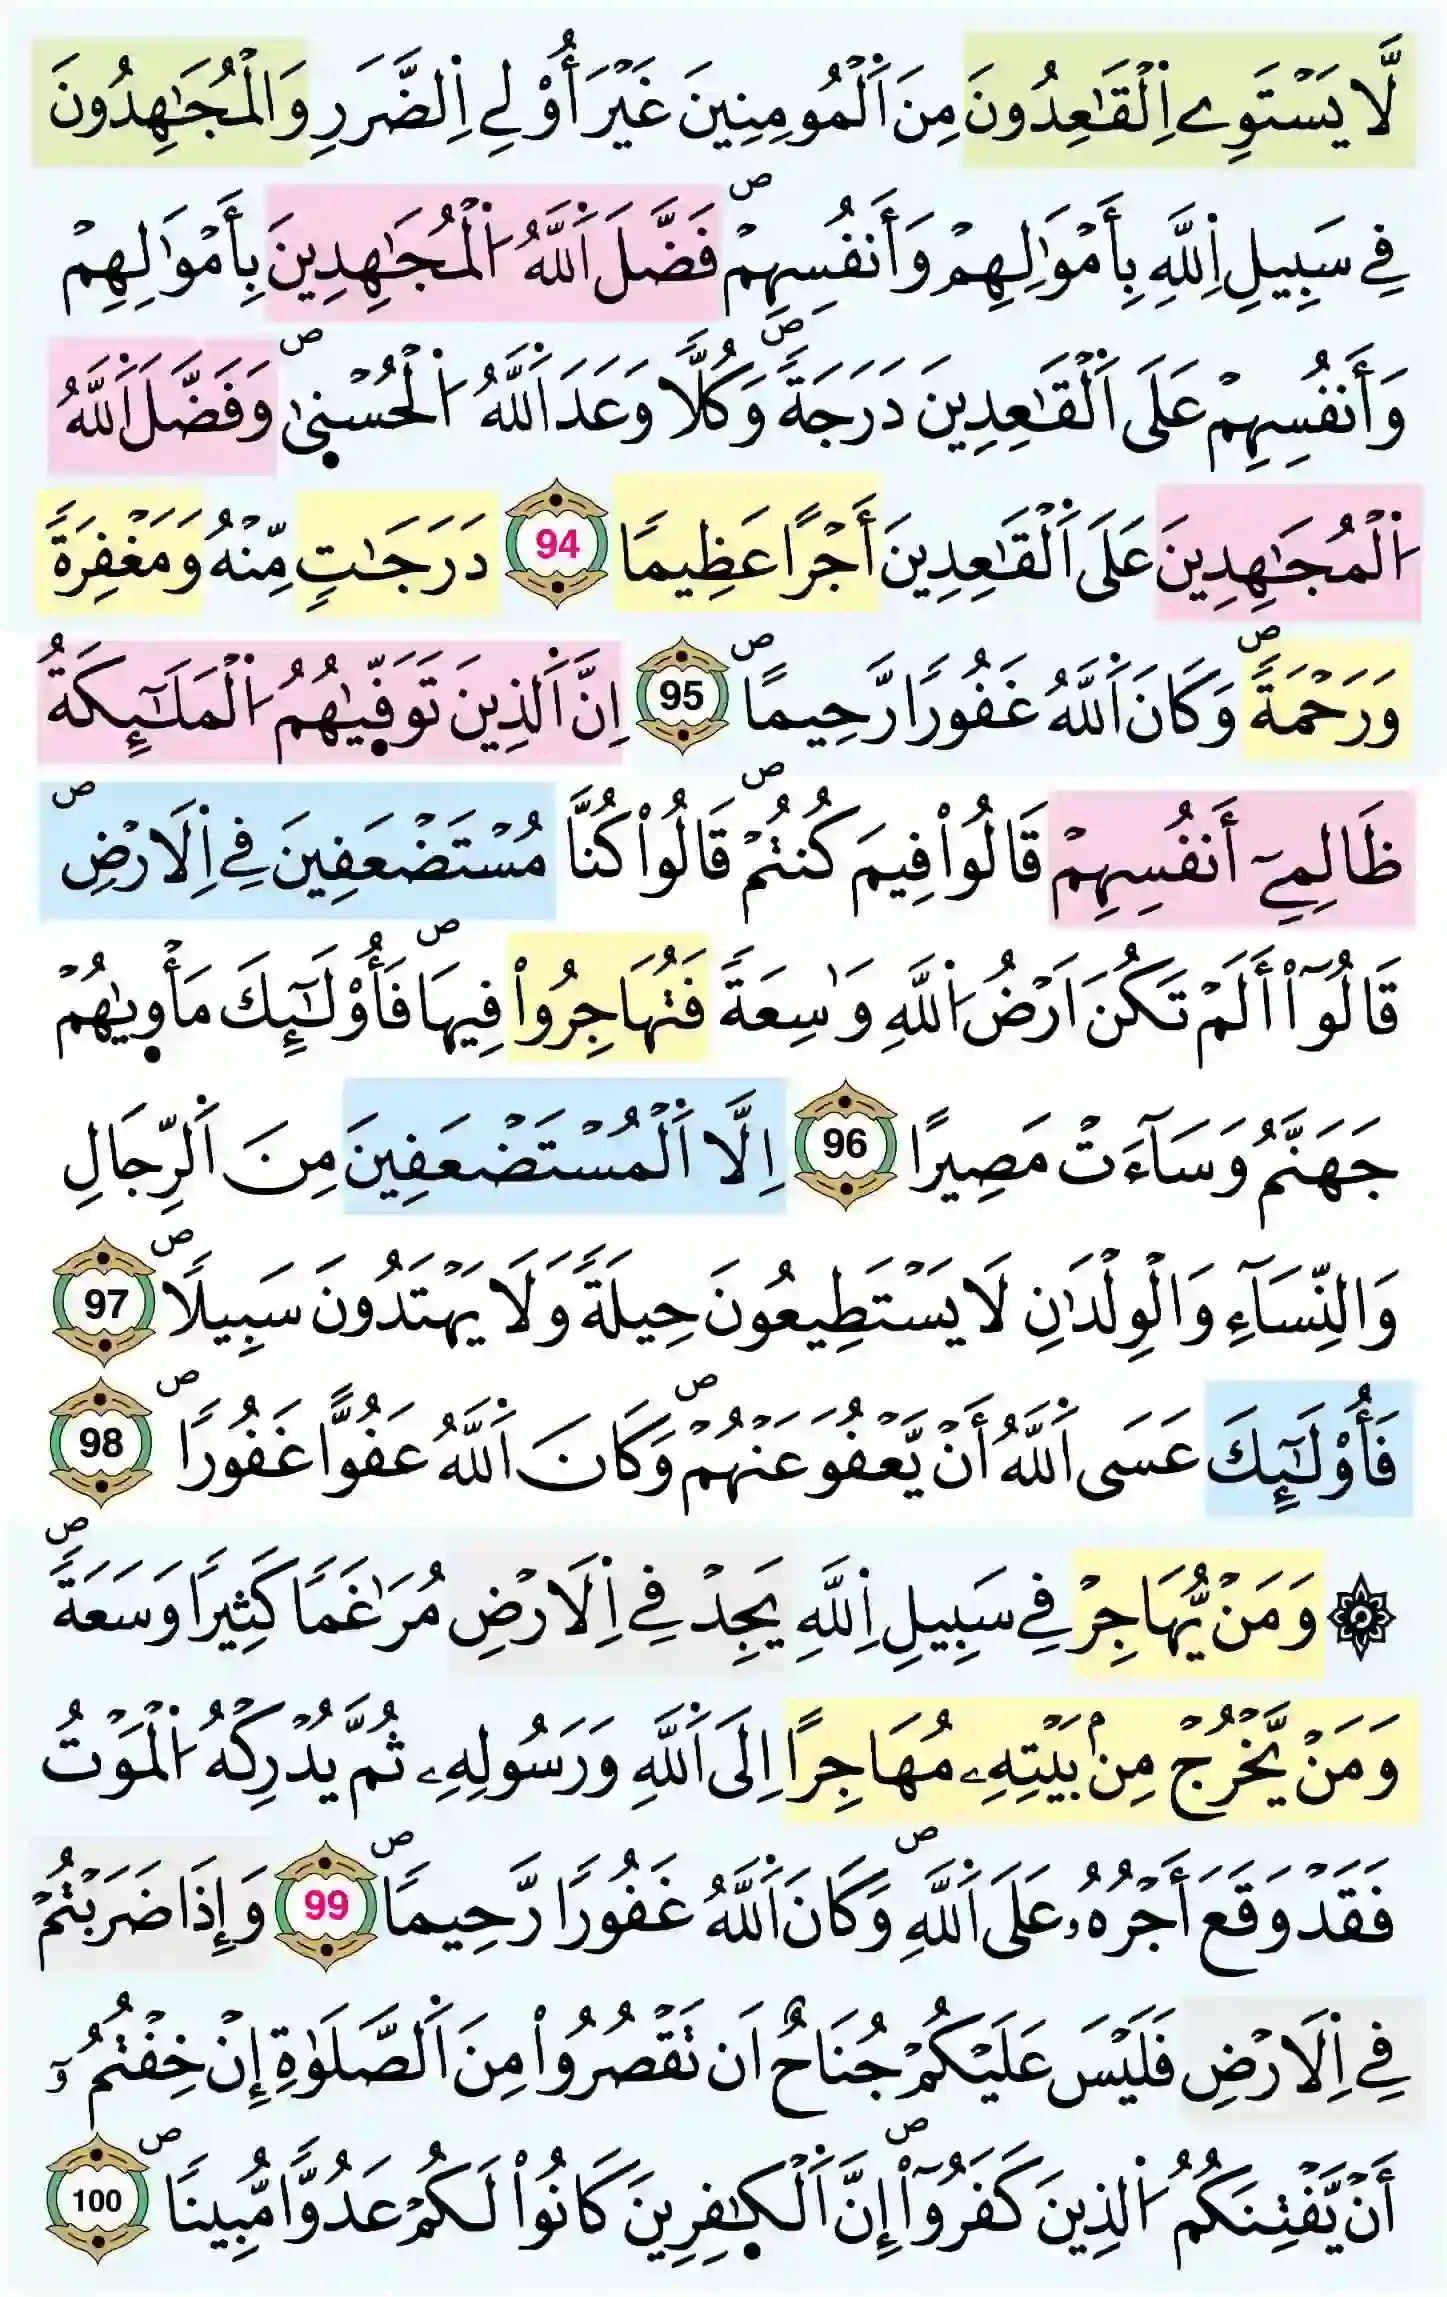 لَّا يَسْتَوِے اِ۬لْقَٰعِدُونَ مِنَ اَ۬لْمُومِنِينَ غَيْرَ أُوْلِے اِ۬لضَّرَرِ وَالْمُجَٰهِدُونَ
فِے سَبِيلِ اِ۬للَّهِ بِأَمْوَٰلِهِمْ وَأَنفُسِهِمْۖ فَضَّلَ اَ۬للَّهُ اُ۬لْمُجَٰهِدِينَ بِأَمْوَٰلِهِمْ
وَأَنفُسِهِمْ عَلَى اَ۬لْقَٰعِدِينَ دَرَجَةٗۖ وَكُلّٗا وَعَدَ اَ۬للَّهُ اُ۬لْحُسْن۪يٰۖ وَفَضَّلَ اَ۬للَّهُ
اُ۬لْمُجَٰهِدِينَ عَلَى اَ۬لْقَٰعِدِينَ أَجْراً عَظِيماٗ 94 دَرَجَٰتٖ مِّنْهُ وَمَغْفِرَةٗ
وَرَحْمَةٗۖ وَكَانَ اَ۬للَّهُ غَفُوراٗ رَّحِيماًۖ 95 اِنَّ اَ۬لذِينَ تَوَفّ۪يٰهُمُ اُ۬لْمَلَٰٓئِكَةُ
ظَالِمِےٓ أَنفُسِهِمْ قَالُواْ فِيمَ كُنتُمْۖ قَالُواْ كُنَّا مُسْتَضْعَفِينَ فِے اِ۬لَارْضِۖ
قَالُوٓاْ أَلَمْ تَكُنَ اَرْضُ اُ۬للَّهِ وَٰسِعَةٗ فَتُهَاجِرُواْ فِيهَاۖ فَأُوْلَٰٓئِكَ مَأْو۪يٰهُمْ
جَهَنَّمُ وَسَآءَتْ مَصِيراً 96 اِلَّا اَ۬لْمُسْتَضْعَفِينَ مِنَ اَ۬لرِّجَالِ
وَالنِّسَآءِ وَالْوِلْدَٰنِ لَا يَسْتَطِيعُونَ حِيلَةٗ وَلَا يَهْتَدُونَ سَبِيلاٗۖ 97
فَأُوْلَٰٓئِكَ عَسَى اَ۬للَّهُ أَنْ يَّعْفُوَ عَنْهُمْۖ وَكَانَ اَ۬للَّهُ عَفُوّاً غَفُوراٗۖ 98
۞ وَمَنْ يُّهَاجِرْ فِے سَبِيلِ اِ۬للَّهِ يَجِدْ فِے اِ۬لَارْضِ مُرَٰغَماٗ كَثِيراٗ وَسَعَةٗۖ
وَمَنْ يَّخْرُجْ مِنۢ بَيْتِهِۦ مُهَاجِراً اِلَى اَ۬للَّهِ وَرَسُولِهِۦ ثُمَّ يُدْرِكْهُ اُ۬لْمَوْتُ
فَقَدْ وَقَعَ أَجْرُهُۥ عَلَى اَ۬للَّهِۖ وَكَانَ اَ۬للَّهُ غَفُوراٗ رَّحِيماٗۖ 99 وَإِذَا ضَرَبْتُمْ
فِے اِ۬لَارْضِ فَلَيْسَ عَلَيْكُمْ جُنَاحٌ اَن تَقْصُرُواْ مِنَ اَ۬لصَّلَوٰةِ إِنْ خِفْتُمُۥٓ
أَنْ يَّفْتِنَكُمُ اُ۬لذِينَ كَفَرُوٓاْۖ إِنَّ اَ۬لْكٰ۪فِرِينَ كَانُواْ لَكُمْ عَدُوّاٗ مُّبِيناٗۖ 100